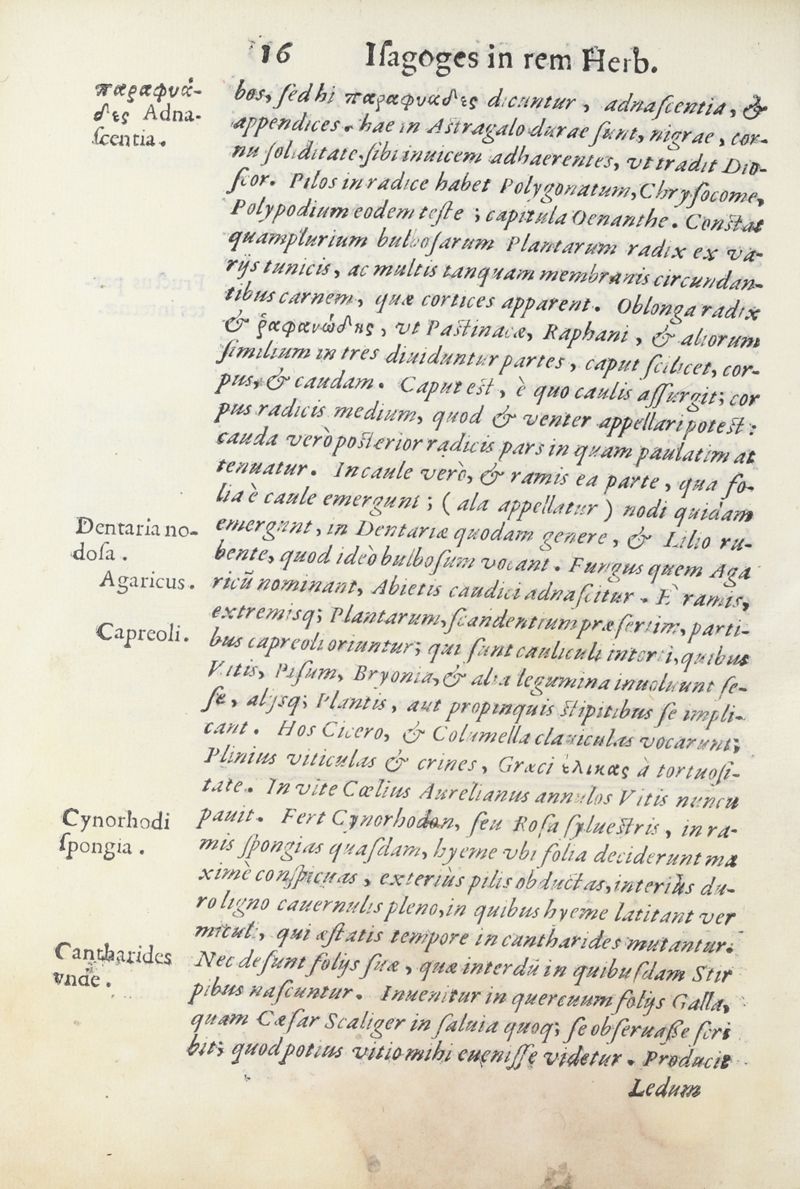 16 Iſagoges in rem Herb.
παραφυά-
δες Adna-
ſcentia.
bos, ſed hi παραφυάδες dicuntur, adnaſcentia, &
appendices. hae in Aſtragalo durae ſunt, nigrae, cor-
nu ſoliditate, ſibi inuicem adhaerentes, vt tradit Dio-
ſcor. Pilos in radice habet Polygonatum, Chryſocome,
Polypodium eodem teſte; capitula Oenanthe. Conſtat
quamplurium bulboſarum Plantarum radix ex va-
rijs tunicis, ac multis tanquam membranis circundan-
tibus carnem, quæ cortices apparent. Oblonga radix
& ῥαφανώδης, vt Paſtinacæ, Raphani, & aliorum
ſimilium in tres diuiduntur partes, caput ſcilicet, cor-
pus, & caudam. Caput eſt, è quo caulis aſſurgit; cor
pus radicis medium, quod & venter appellari poteſt:
cauda verò poſterior radicis pars in quam paulatim at
tenuatur. In caule verò, & ramis ea parte, qua fo-
lia è caule emergunt; (ala appellatur) nodi quidam
Dentaria no-
doſa.
emergunt, in Dentariæ quodam genere, & Lilio ru-
bente, quod ideò bulboſum vocant. Fungus quem Aga
Agaricus.
ricū nominant, Abietis caudici adnaſcitur. E ramis,
extremisq; Plantarum, ſcandentium præſertim, parti-
Capreoli.
bus capreoli oriuntur; qui ſunt cauliculi intorti, quibus
Vitis, Piſum, Bryonia, & alia legumina inuoluunt ſe-
ſe, alijsq; Plantis, aut propinquis ſtipitibus ſe impli-
cant. Hos Cicero, & Columella clauiculas vocarunt;
Plinius viticulas & crines, Græci ἕλικας à tortuoſi-
tate. In vite Cœlius Aurelianus annulos Vitis nuncu
Cynorhodi
ſpongia.
pauit. Fert Cynorhodon, ſeu Roſa ſylueſtris, in ra-
mis ſpongias quaſdam, hyeme vbi folia deciderunt ma
ximè conſpicuas, exteriùs pilis obductas, interiùs du-
ro ligno cauernulis pleno, in quibus hyeme latitant ver
miculi, qui æſtatis tempore in cantharides mutantur.
Cantharides
vnde.
Nec deſunt folijs ſuæ, quæ interdū in quibuſdam Stir
pibus naſcuntur. Inuenitur in quercuum folijs Galla,
quam Cæſar Scaliger in ſaluia quoq; ſe obſeruaſſe ſcri
bit; quod potius vitio mihi eueniſſe videtur. Producit
Ledum